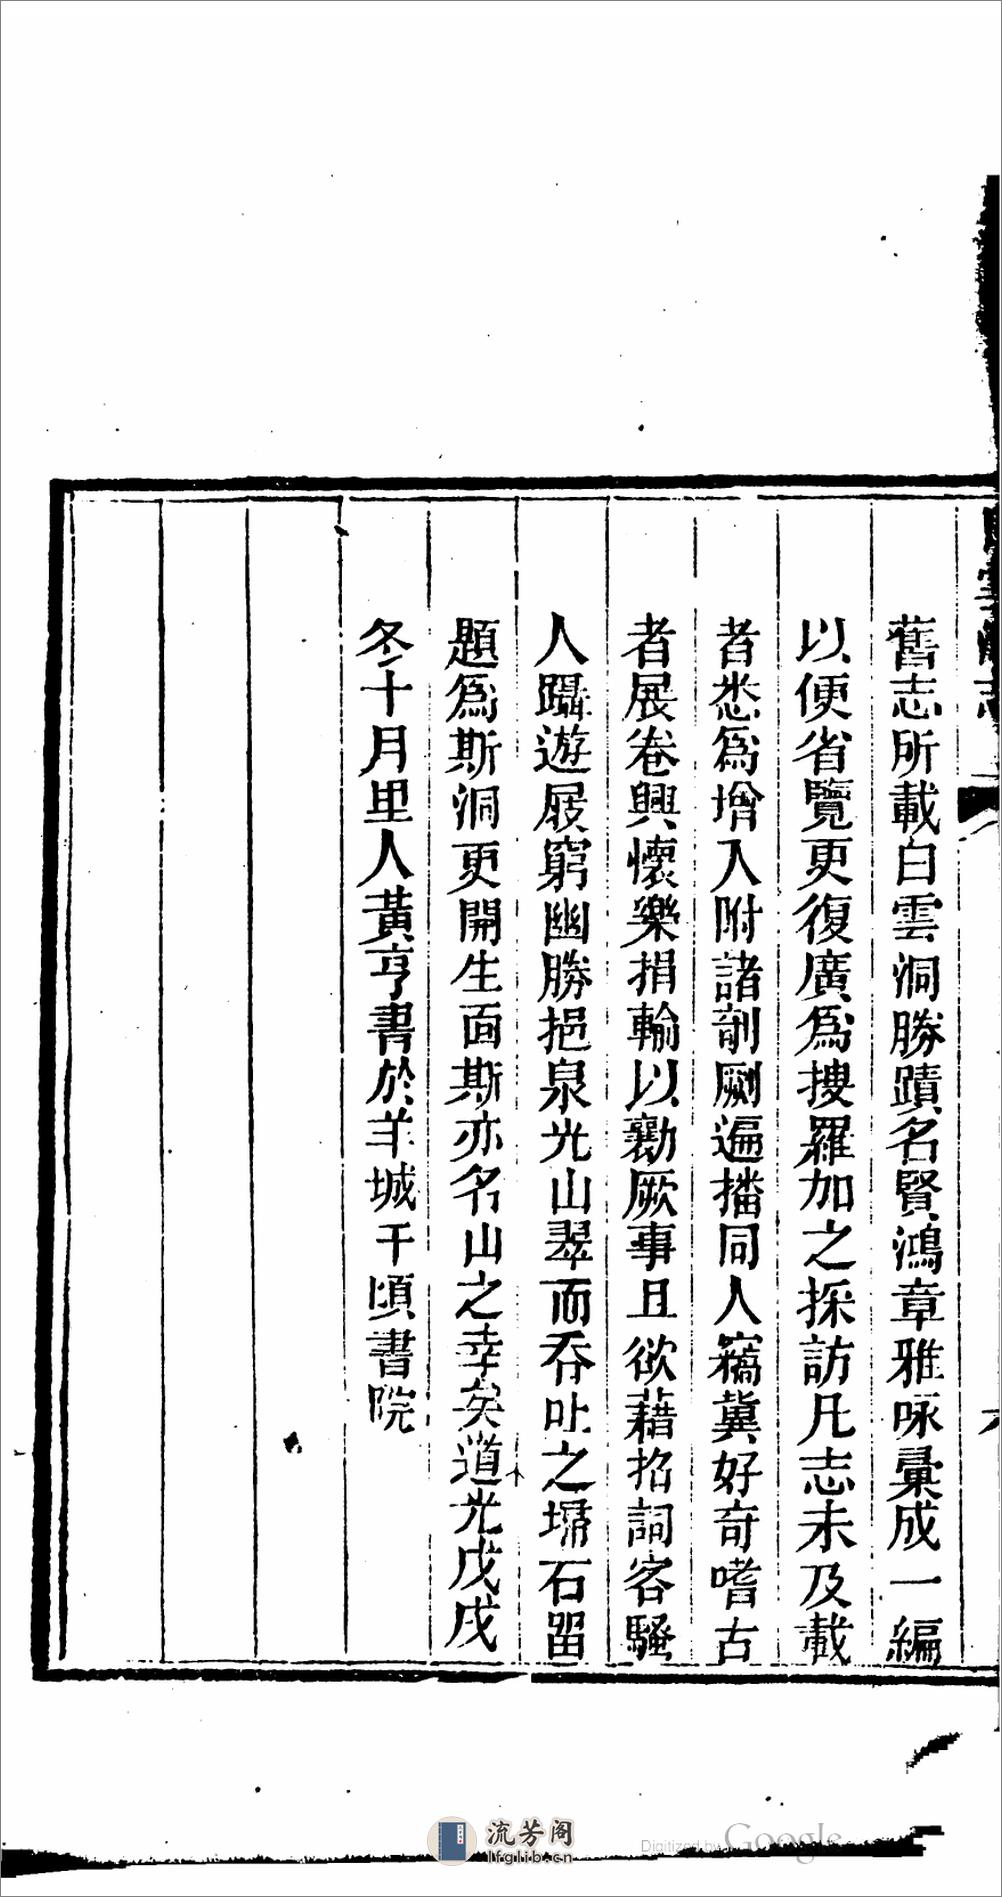 舊志所載白雲洞勝蹟名賢鴻章雅咏彚成一編
以便省覽更復廣爲搜羅加之採訪凡志未及載
者悉爲增入附諸剞劂遍播同人竊冀好奇嗜古
者展卷興懷樂捐輸以勷厥事且欲藉招詞客騷
人躡遊屐窮幽勝挹泉光山翠而吞吐之埽石留
題爲斯洞更開生面斯亦名山之幸矣道光戊戌
冬十月里人黃亨書於羊城千頃書院
流芳阁
lfglib.cn
Digitized by Google